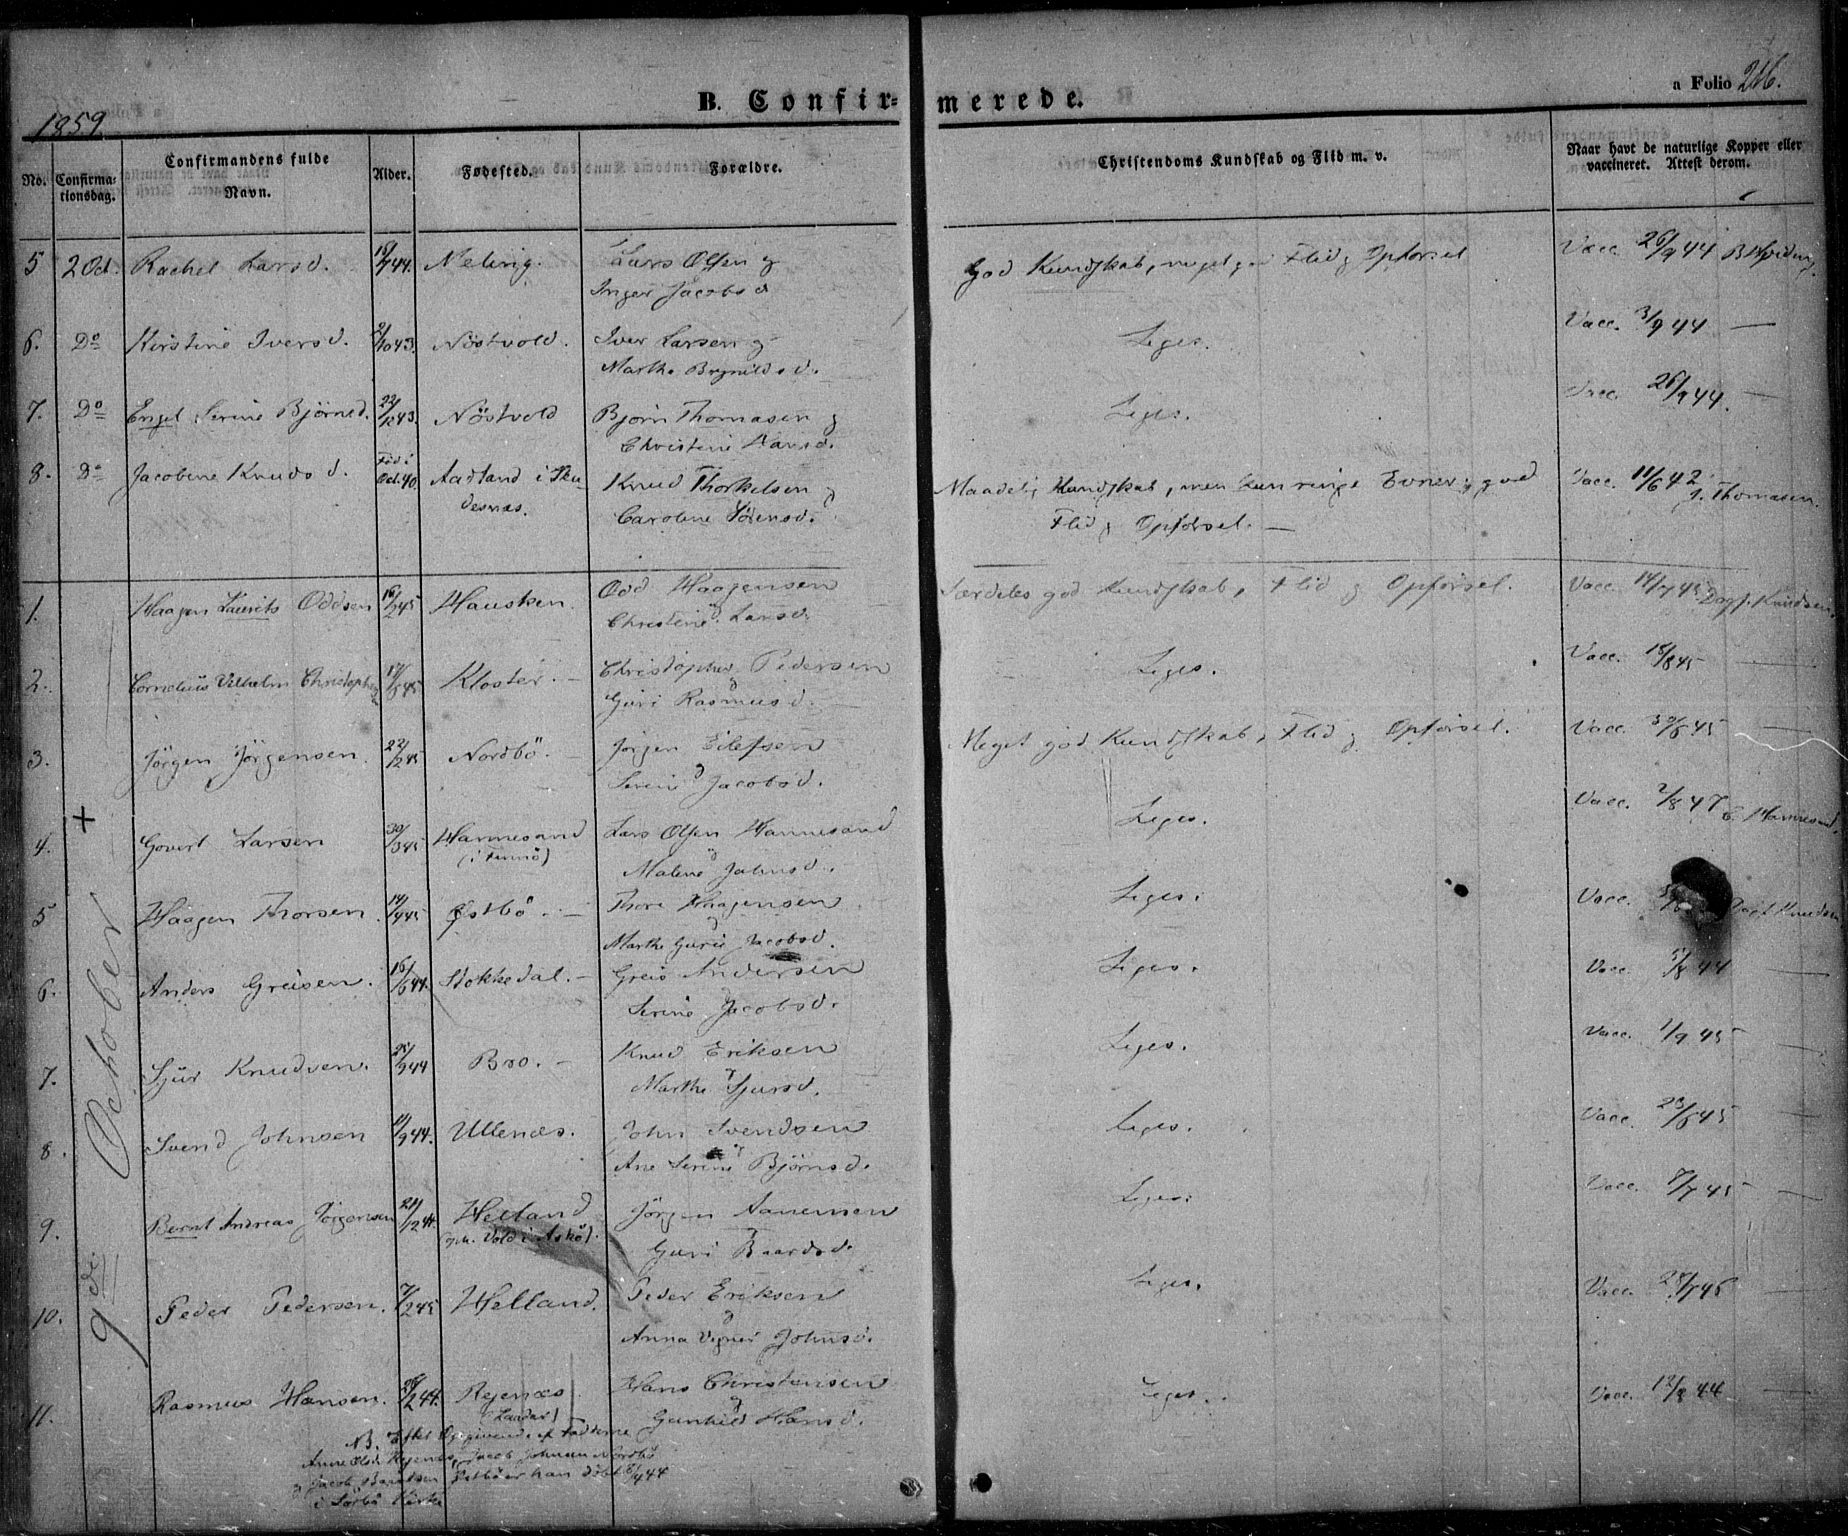 B. Confir- merede.
a Folio 216.
1859
No. Confirma- tionsdag. Confirmandens fulde Navn. Alder. Fødested. Forældre. Christendoms Kundskab og Flid m. v. Naar havt de naturlige Kopper eller vaccineret. Attest derom.
5 2 Oct. Rachel Larsd. Lars Olsen og God Kundskab, meget god Flid og Opførsel Vacc. 26/9 44
Inger Jacobsd
6. Do Kirstine Iversd. 2/10 43. Nöstvold. Iver Larsen og Liges. Vacc. 3/9 44 —
Marthe Brynildsd.
7. Do Engel Serine Björnsd. 22/12 43. Nöstvold Bjorn Thomasen og Liges. Vacc. 26/9 44. —
Christine Larsd.
8. Do Jacobine Knudsd. Föd i Oct. 40. Aadland i Sku- Knud Thorkelsen og Maadelig Kundskab, men kun ringe Evner og god Vacc. 11/6 42 J. Thomasen.
desnæs. Caroline Sörensd. Flid og Opførsel. —
9de October
1. Haagen Laurits Oddsen 16/2 45 Hausken. Odd Haagensen Særdeles god Kundskab, Flid og Opførsel. Vacc. 14/7 45 Dagf. Knudsen
og Christine Larsd.
2. Cornelius Vilhelm Christophers Kloster. — Christopher Pedersen Liges. Vacc. 18/8 45 —
og Guri Rasmusd.
3. Jörgen Jörgensen. 22/2 45 Nordbö. — Jörgen Eilefsen Meget god Kundskab, Flid og Opførsel. Vacc. 30/6 45 —
og Serine Jacobsd.
4. Govert Larsen 30/3 45 Hannesand Lars Olsen Hannesand Liges. Vacc. 2/8 47 E. Hannesand.
(i Finnö) og Malene Johnsd.
5 Haagen Thorsen. 14/4 45 Østbö. — Thore Haagensen Liges. Vacc. Dagf. Knudsen
og Marthe Gurie Jacobsd.
6. Anders Greisen. 16/6 44. Stokkedal. — Greis Andersen Liges. Vacc. 5/8 44 —
Serine Jacobsd.
7. Sjur Knudsen. 25/9 44 Bro. — Knud Eriksen Liges. Vacc. 1/9 45 —
og Marthe Sjursd.
8. Svend Johnsen 19/9 44. Ullenæs. John Svendsen Liges. Vacc. 23/6 45 —
og Ane Serine Björnsd.
9. Bernt Andreas Jörgensen 24/12 44 Helland Jörgen Aanensen Liges. Vacc. 7/7 45 —
Vold i Askö). og Guri Baardsd.
10. Peder Pedersen. 7/2 45 Helland. Peder Eriksen Liges. Vacc. 28/7 45 —
og Anna Johnsd.
11. Rasmus Hansen. 28/2 44. Rejenæs Hans Christensen Liges. Vacc. 12/8 44 —
og Gunhild Hansd.
NB. Efter Opgivende af Fadderne
Jacob Johnsen Nordbö
og Jacob han döbt 8/4 44
i Sörbö Kirke